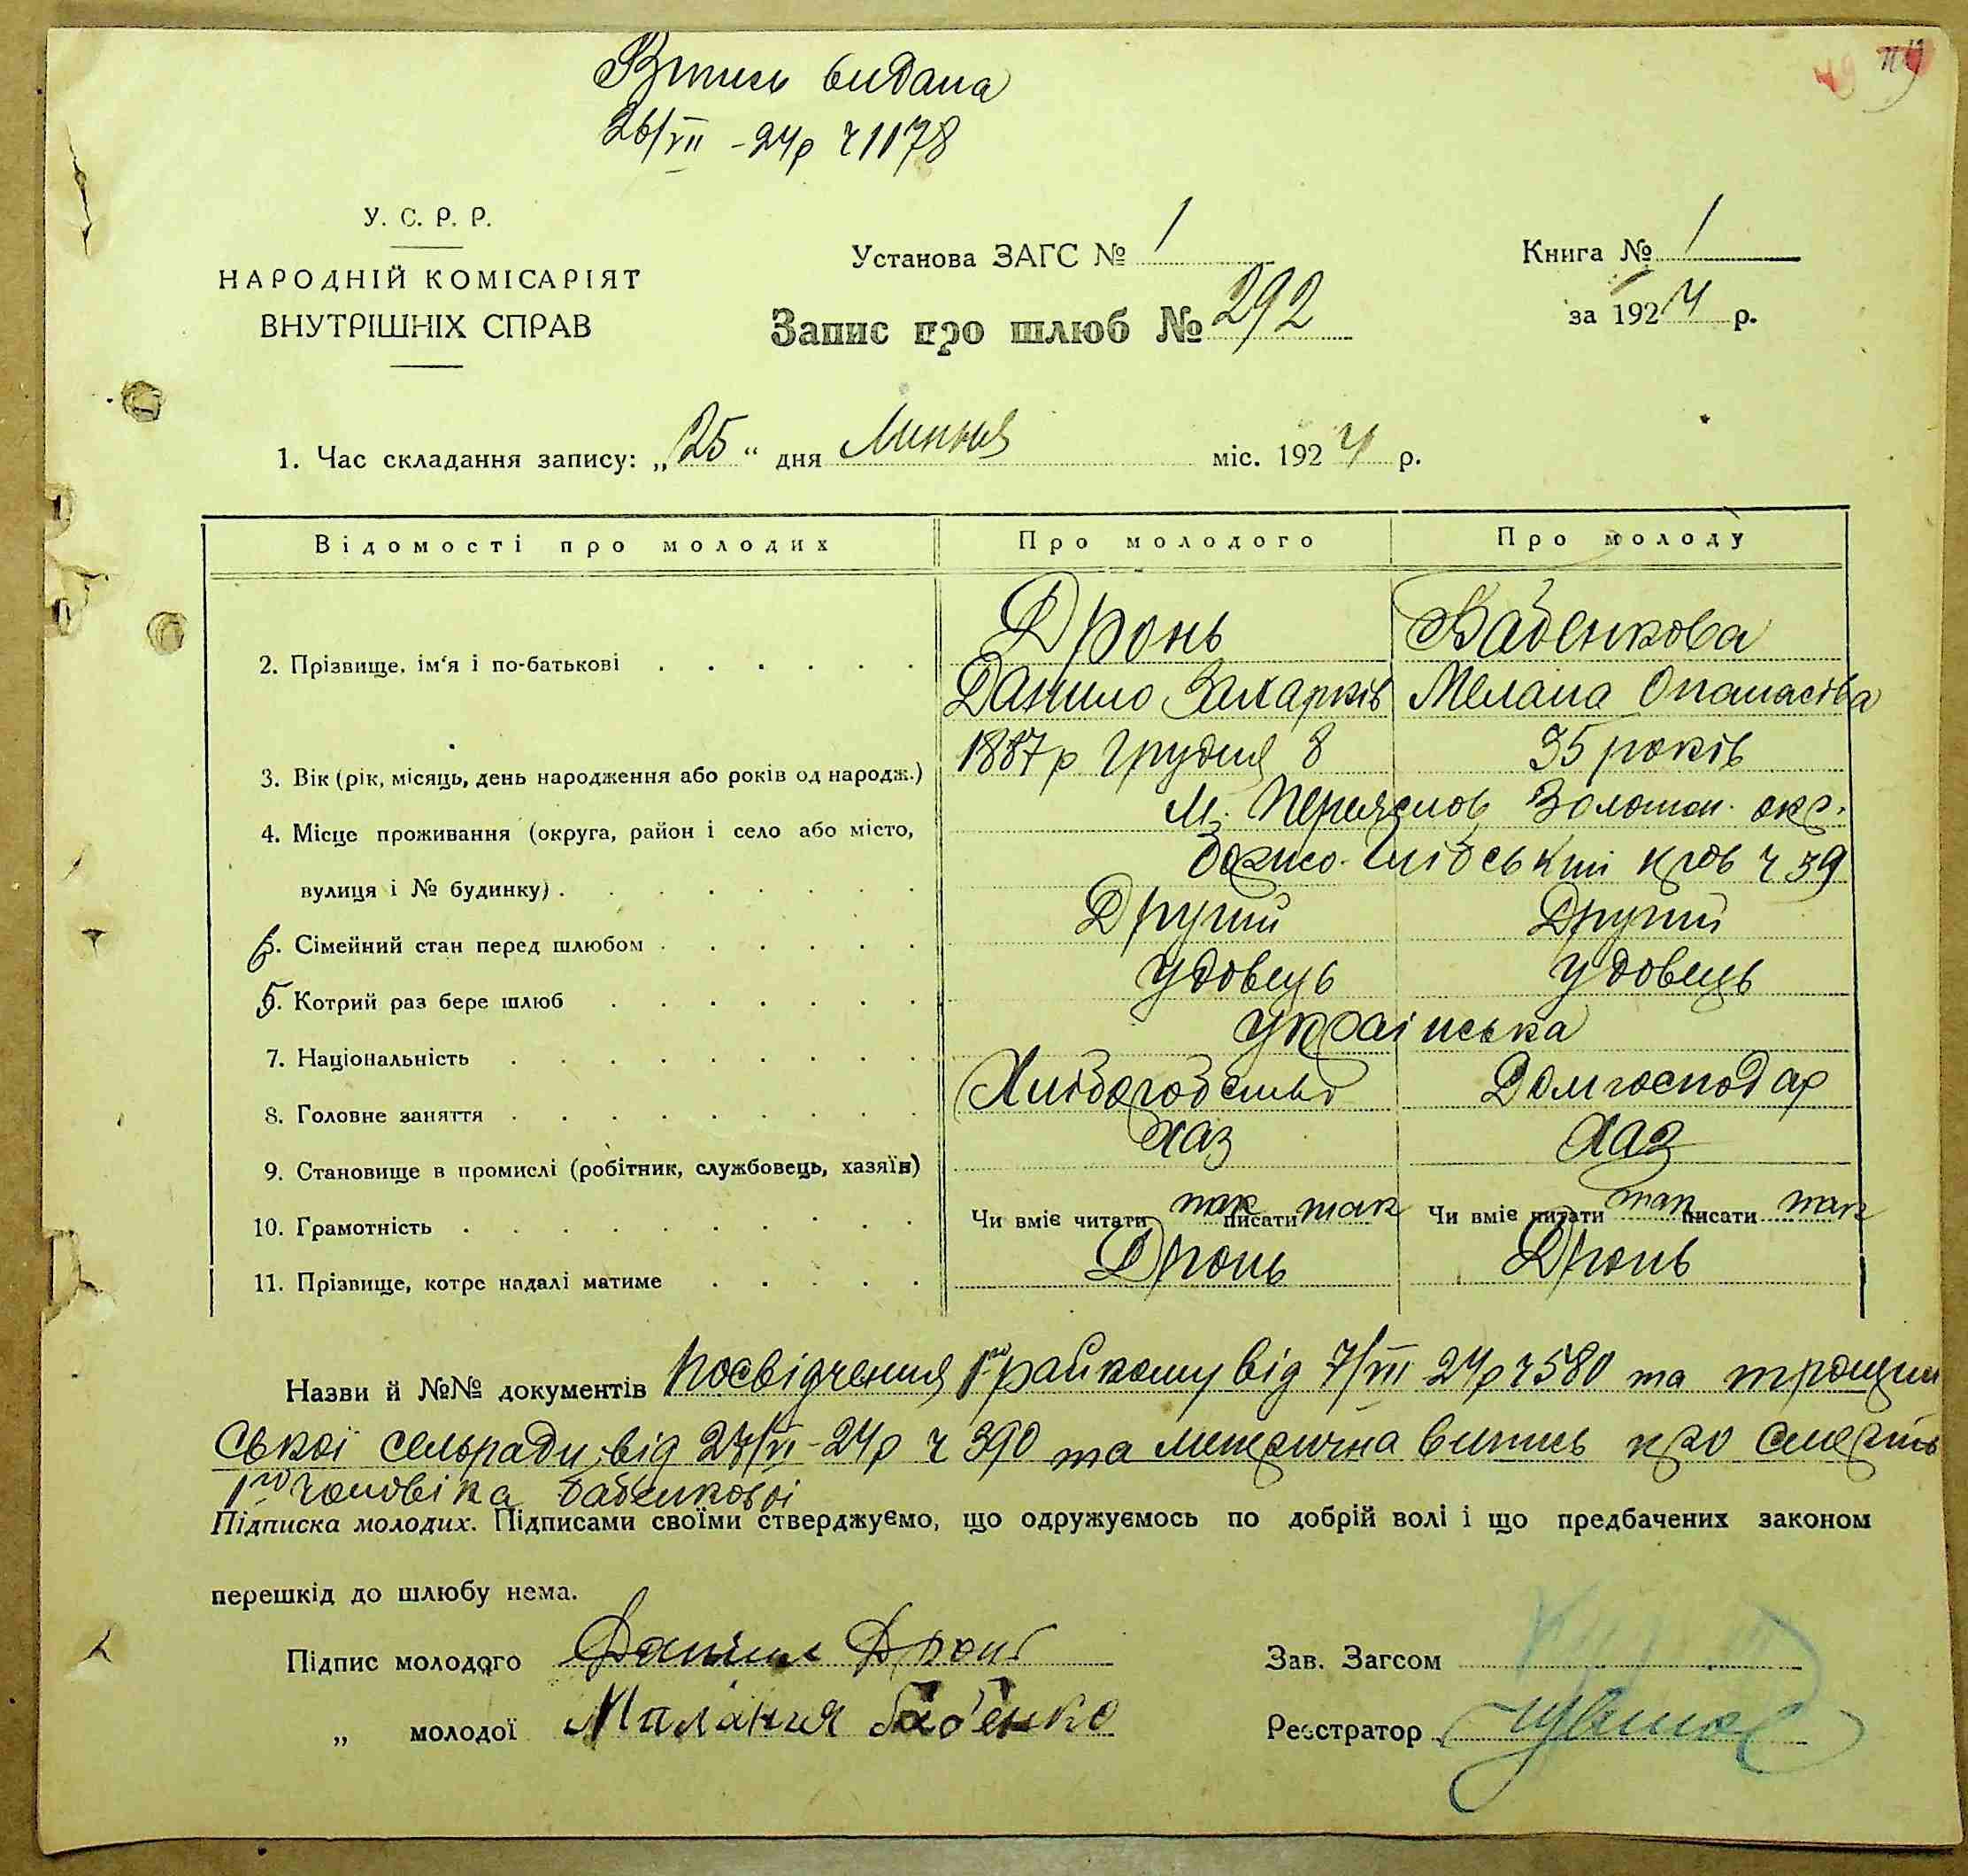 Випись видана
26/VII - 24р ч 1178
49
У. С. Р. Р.
НАРОДНІЙ КОМІСАРІЯТ
ВНУТРІШНІХ СПРАВ
Установа ЗАГС № 1
Запис про шлюб № 292
Книга № 1
за 1924 р.
1. Час складання запису: „25“ дня Липня міс. 1924 р.
Відомості про молодих Про молодого Про молоду
Дронь Бабенкова
2. Прізвище, ім'я і по-батькові Данило Захарків Мелана Опанасівa
3. Вік (рік, місяць, день народження або років од народж.) 1887р Грудня 8 35 років
4. Місце проживання (округа, район і село або місто, М. Переяслов Золотон. окр.
вулиця і № будинку) Борисо-Глібський пров ч 39
6. Сімейний стан перед шлюбом Другий Другий
5. Котрий раз бере шлюб удовець удовець
7. Національність українська
8. Головне заняття Хліборобство Домгосподар
9. Становище в промислі (робітник, службовець, хазяїн) хаз хаз
10. Грамотність Чи вміє читати так писати так Чи вміє читати так писати так
11. Прізвище, котре надалі матиме Дронь Дронь
Назви й №№ документів Посвідчення райкому від 7/VII 24р ч 580 та трощин
ської сельради від 24/VI-24р ч 390 та метрична випись про смерть
1го чоловіка Бабенкової
Підписка молодих. Підписами своїми стверджуємо, що одружуємось по добрій волі і що предбачених законом
перешкід до шлюбу нема.
Підпис молодого Даниил Дронь Зав. Загсом
„ молодої Малания Бабенко Реєстратор